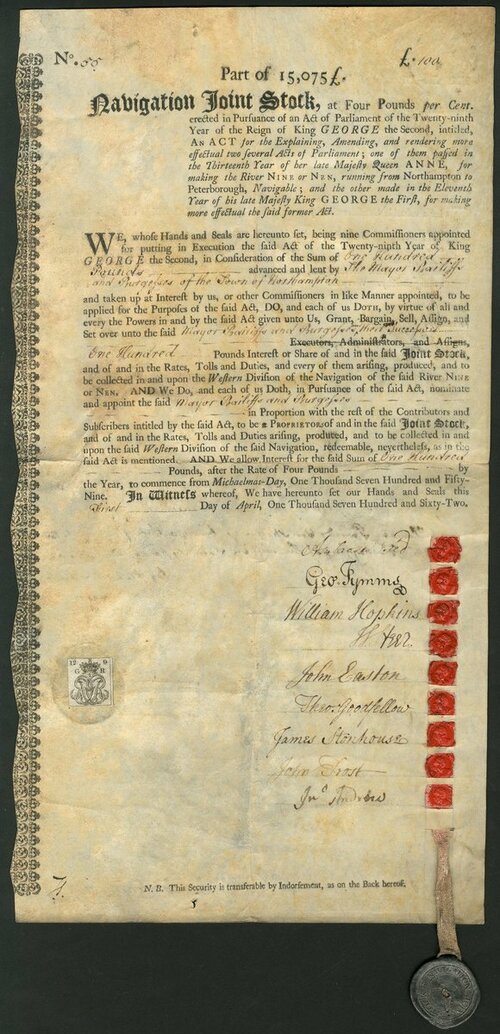 No. 55 £. 100
Part of 15,075£.
Navigation Joint Stock, at Four Pounds per Cent.
erected in Pursuance of an Act of Parliament of the Twenty-ninth
Year of the Reign of King GEORGE the Second, intitled,
An ACT for the Explaining, Amending, and rendering more
effectual two several Acts of Parliament; one of them passed in
the Thirteenth Year of her late Majesty Queen ANNE, for
making the River NINE or NEN, running from Northampton to
Peterborough, Navigable; and the other made in the Eleventh
Year of his late Majesty King GEORGE the First, for making
more effectual the said former Act.
WE, whose Hands and Seals are hereunto set, being nine Commissioners appointed
for putting in Execution the said Act of the Twenty-ninth Year of King
GEORGE the Second, in Consideration of the Sum of One Hundred
Pounds advanced and lent by The Mayor Bailiffs
and Burgesses of the Town of Northampton
and taken up at Interest by us, or other Commissioners in like Manner appointed, to be
applied for the Purposes of the said Act, DO, and each of us DOTH, by virtue of all and
every the Powers in and by the said Act given unto Us, Grant, Bargain, Sell, Assign, and
Set over unto the said Mayor Bailiffs and Burgesses, their Successors
Executors, Administrators, and Assigns,
One Hundred Pounds Interest or Share of and in the said Joint Stock,
and of and in the Rates, Tolls and Duties, and every of them arising, produced, and to
be collected in and upon the Western Division of the Navigation of the said River NINE
or NEN, AND We Do, and each of us Doth, in Pursuance of the said Act, nominate
and appoint the said Mayor Bailiffs and Burgesses
in Proportion with the rest of the Contributors and
Subscribers intitled by the said Act, to be a PROPRIETOR of and in the said Joint Stock,
and of and in the Rates, Tolls and Duties arising, produced, and to be collected in and
upon the said Western Division of the said Navigation, redeemable, nevertheless, as in the
said Act is mentioned. AND We allow Interest for the said Sum of One Hundred
Pounds, after the Rate of Four Pounds by
the Year, to commence from Michaelmas-Day, One Thousand Seven Hundred and Fifty-
Nine. In Witness whereof, We have hereunto set our Hands and Seals this
First Day of April, One Thousand Seven Hundred and Sixty-Two.
Geo. Tymms
William Hopkins
John Easton
Theo. Goodfellow
James Stonhouse
John Frost
Jno. Andrew
G R
N. B. This Security is transferable by Indorsement, as on the Back hereof.